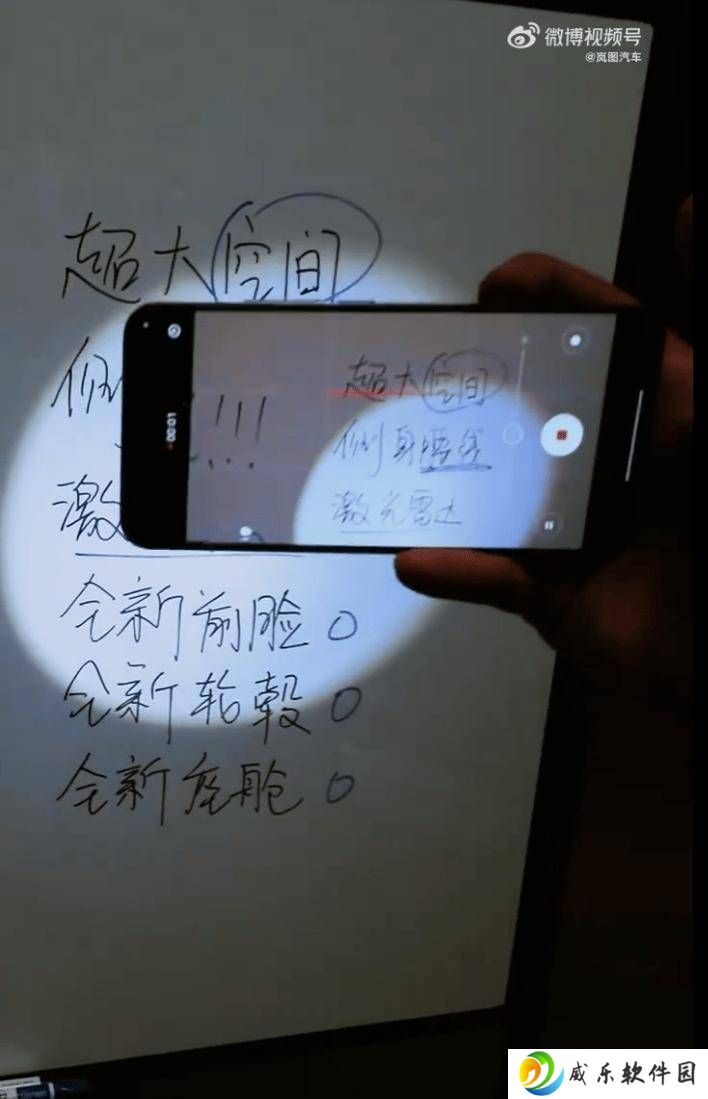 微博视频号
@岚图汽车
超大空间
侧
激
全新前脸0
全新轮毂0
全新座舱0
00:01
!!!
...
超大空间
侧身腰线
激光雷达
威乐软件园